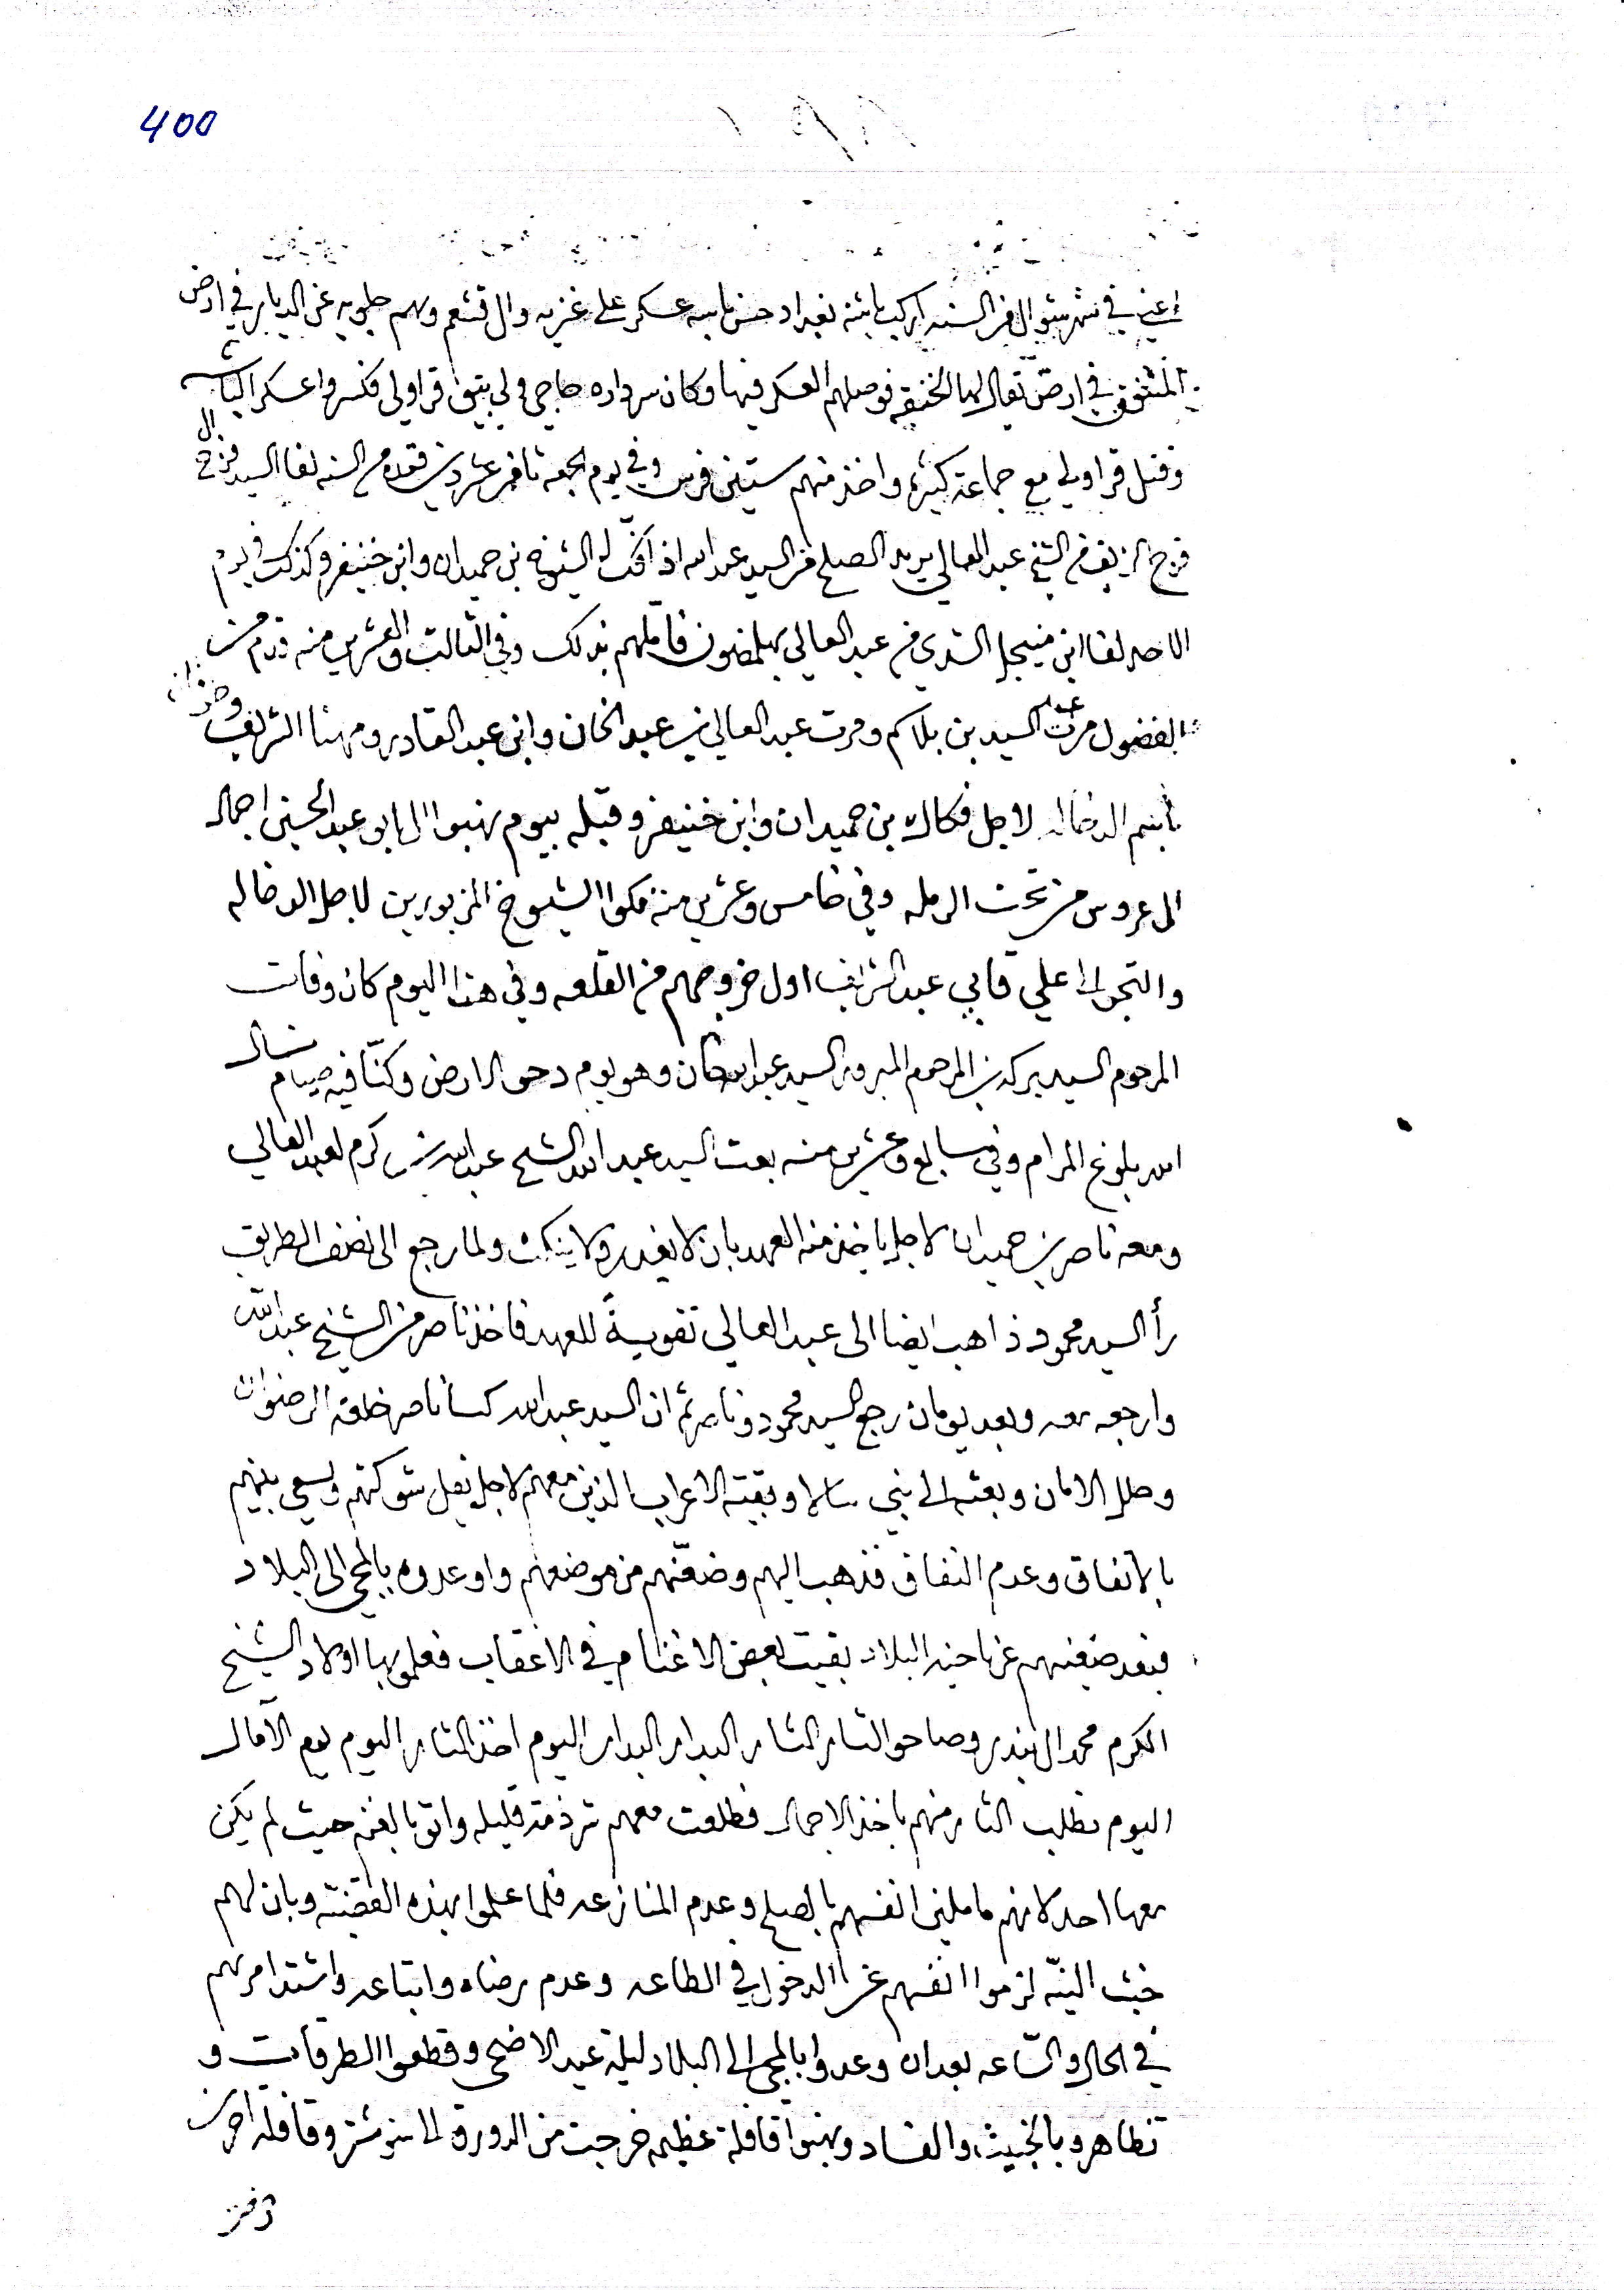 400
اعني في شهر شوال من السنه اركب باشة بغداد حسن باشه عسكر على غزيه وال قشعم وهم جلويه عن الديار في ارض
المنتفق في ارض تقال لها الخنيقه فوصلهم العسكر فيها وكان سرداره حاجي ولي بيتين قراولي فكسروا عسكر الباشه
وقتل قراولي مع جماعة كثيره واخذ منهم ستين فرس وفي يوم الجمعه ثامن عشر ذي قعده من السنه لفا السيد فرج ال
فرج من الشيخ عبد العالي يريد الصلح من السيد عبد الله اذا فك له الشيوخ بن حميدان وابن خنيفر وكذلك في يوم
الاحد لفا ابن منيجل السدي من عبد العالي فاملهم بذلك وفي الثالث والعشرين منه قدم من
الفضول مرت عبد السيد بن بلاكم ومرت عبد العالي بنت عبد الخان وابن عبد القادر ومهنا الشريف
الدخاله لاجل فكاك بن حميدان وابن خنيفر وقبله بيوم نهبوا البو عبد الحسين اجمال
العروس من تحت الرمله وفي خامس وعشرين منه فكوا الشيوخ المزبورين لاجل الدخاله
والتجوا الى علي قابي عبد الشريف اول خروجهم من القلعه وفي هذا اليوم كان وفات
المرحوم السيد بركه بن المرحوم المبرور السيد عبد الله خان وهو يوم دحو الارض وكنّا فيه صيام نسال
الله بلوغ المرام وفي سابع وعشرين منه بعث السيد عبد الله الشيخ عبد الله بن كرم لعبد العالي
ومعه ناصر بن حميدان لاجل ياخذ منه العهد بان لا يغدر ولا ينكث ولما رجع الى نصف الطريق
رأ السيد محمود ذاهب ايضا الى عبد العالي تقويةً للعهد فاخذ ناصر من الشيخ عبد الله
وارجعه معه وبعد يومان رجع السيد محمود وناصر ثم ان السيد عبد الله كسا ناصر خلعة الرضوان
وحلل الامان وبعثه الى بني ساله وبقية الاعراب الذين معهم لاجل تقل شوكتهم ويسعى بينهم
بالاتفاق وعدم النفاق فذهب اليهم وضعّنهم من موضعهم واوعدوه بالمجي الى البلاد
فبعد ضعنهم عن ناحية البلاد بقيت بعض الاغنام في الاعقاب فعلموا بها اولاد الشيخ
الكرم محمد ال بندر وصاحو الثار الثار البدار البدار اليوم اخذ الثار اليوم يوم الآمال
اليوم نطلب الثار منهم باخذ الاجمال فطلعت معهم شرذمة قليله واتو بالغنم حيث لم يكن
معها احد لانهم ماملين انفسهم بالصلح وعدم المنازعه فلما علموا بهذه القضيّه وبان لهم
خبث النيّه لزموا انفسهم عن الدخول في الطاعه وعدم رضاه واتباعه واشتد امرهم
في الحال والسّاعه بعد ان وعدوا بالمجي الى البلاد ليلة عيد الاضحى وقطعوا الطرقات و
تظاهرو بالخبيث والفساد ونهبوا قافلة عظيمه خرجت من الدورق الى شوشتر وقافلة اخرى